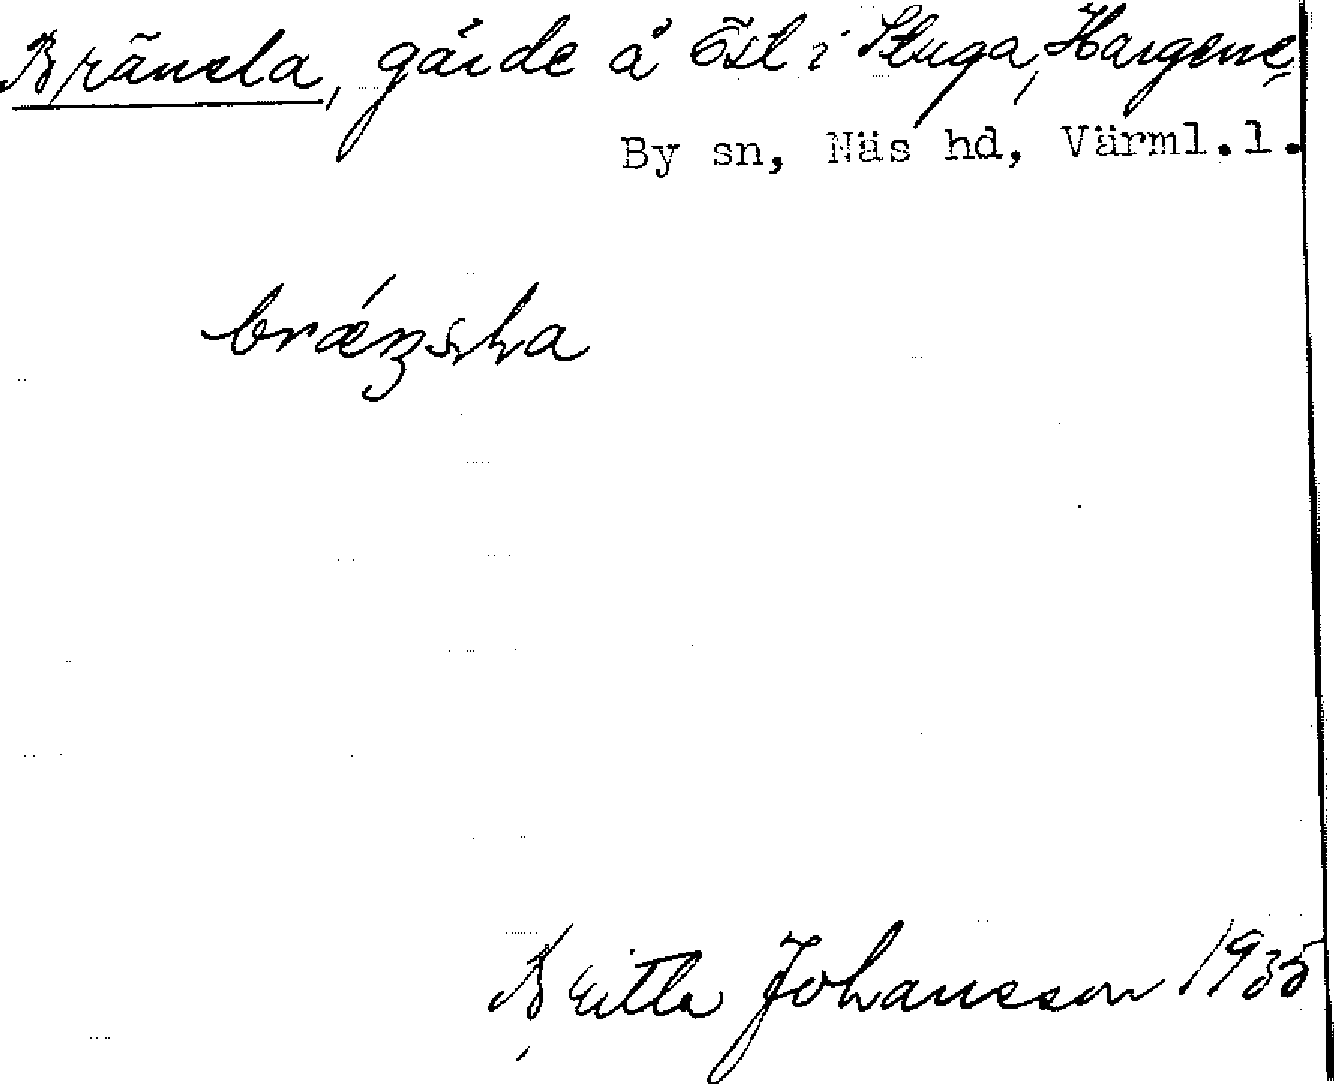 Bränsla, gärde å Östl i Stuga, Hargene,
By sn, Näs hd, Värml.l.
Britta Johansson 1935